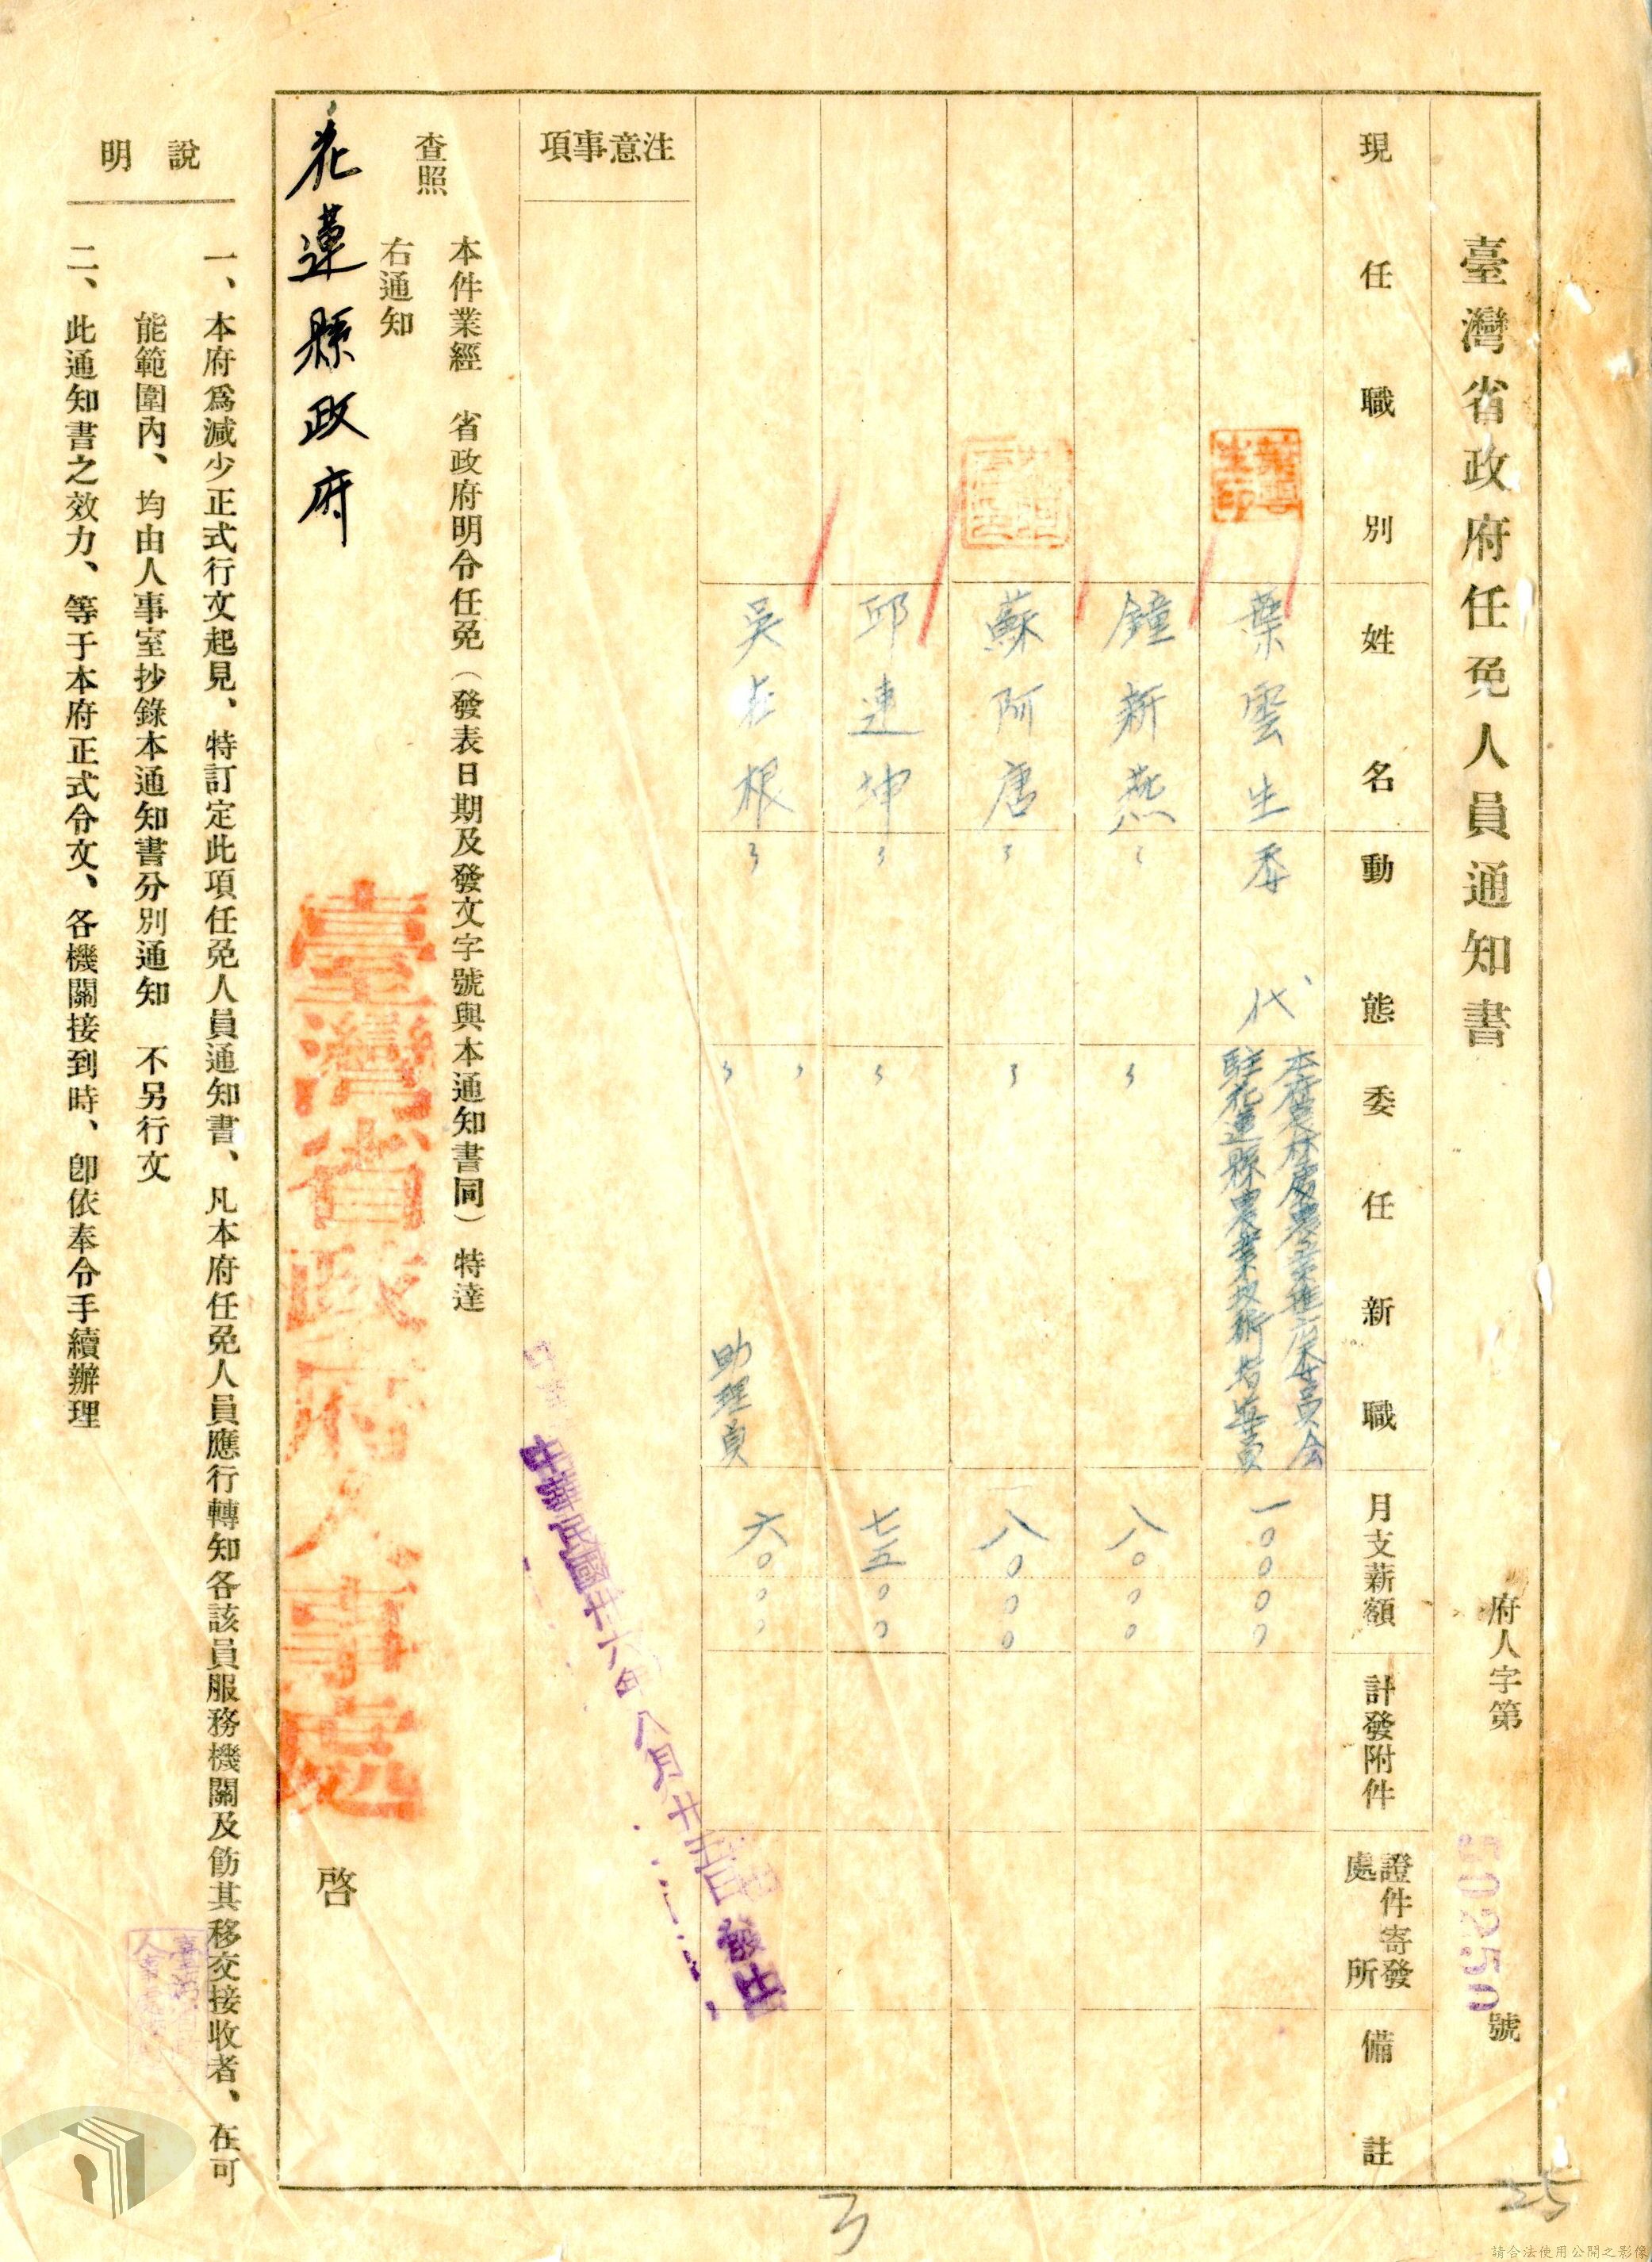 臺灣省政府任免人員通知書
府人字第50250號
現任職別
姓名
動態
委任新職
月支薪額
計發附件
證件寄發處所
備註
葉雲生
委
代
本府農林處農業推廣委員會
駐花蓮縣農業技術指導員
一〇〇〇〇
鐘新燕
〃
〃
八〇〇〇
蘇阿唐
〃
〃
八〇〇〇
邱連坤
〃
〃
七五〇〇
吳在根
〃
〃 〃
助理員
六〇〇〇
注意事項
中華民國卅六年八月廿五日發出
本件業經 省政府明令任免（發表日期及發文字號與本通知書同）特達
查照
右通知
花蓮縣政府
臺灣省政府人事處
啓
說明
一、本府爲減少正式行文起見、特訂定此項任免人員通知書、凡本府任免人員應行轉知各該員服務機關及飭其移交接收者、在可
能範圍內、均由人事室抄錄本通知書分別通知 不另行文
二、此通知書之效力、等于本府正式令文、各機關接到時、卽依奉令手續辦理
25
3
請合法使用公開之影像